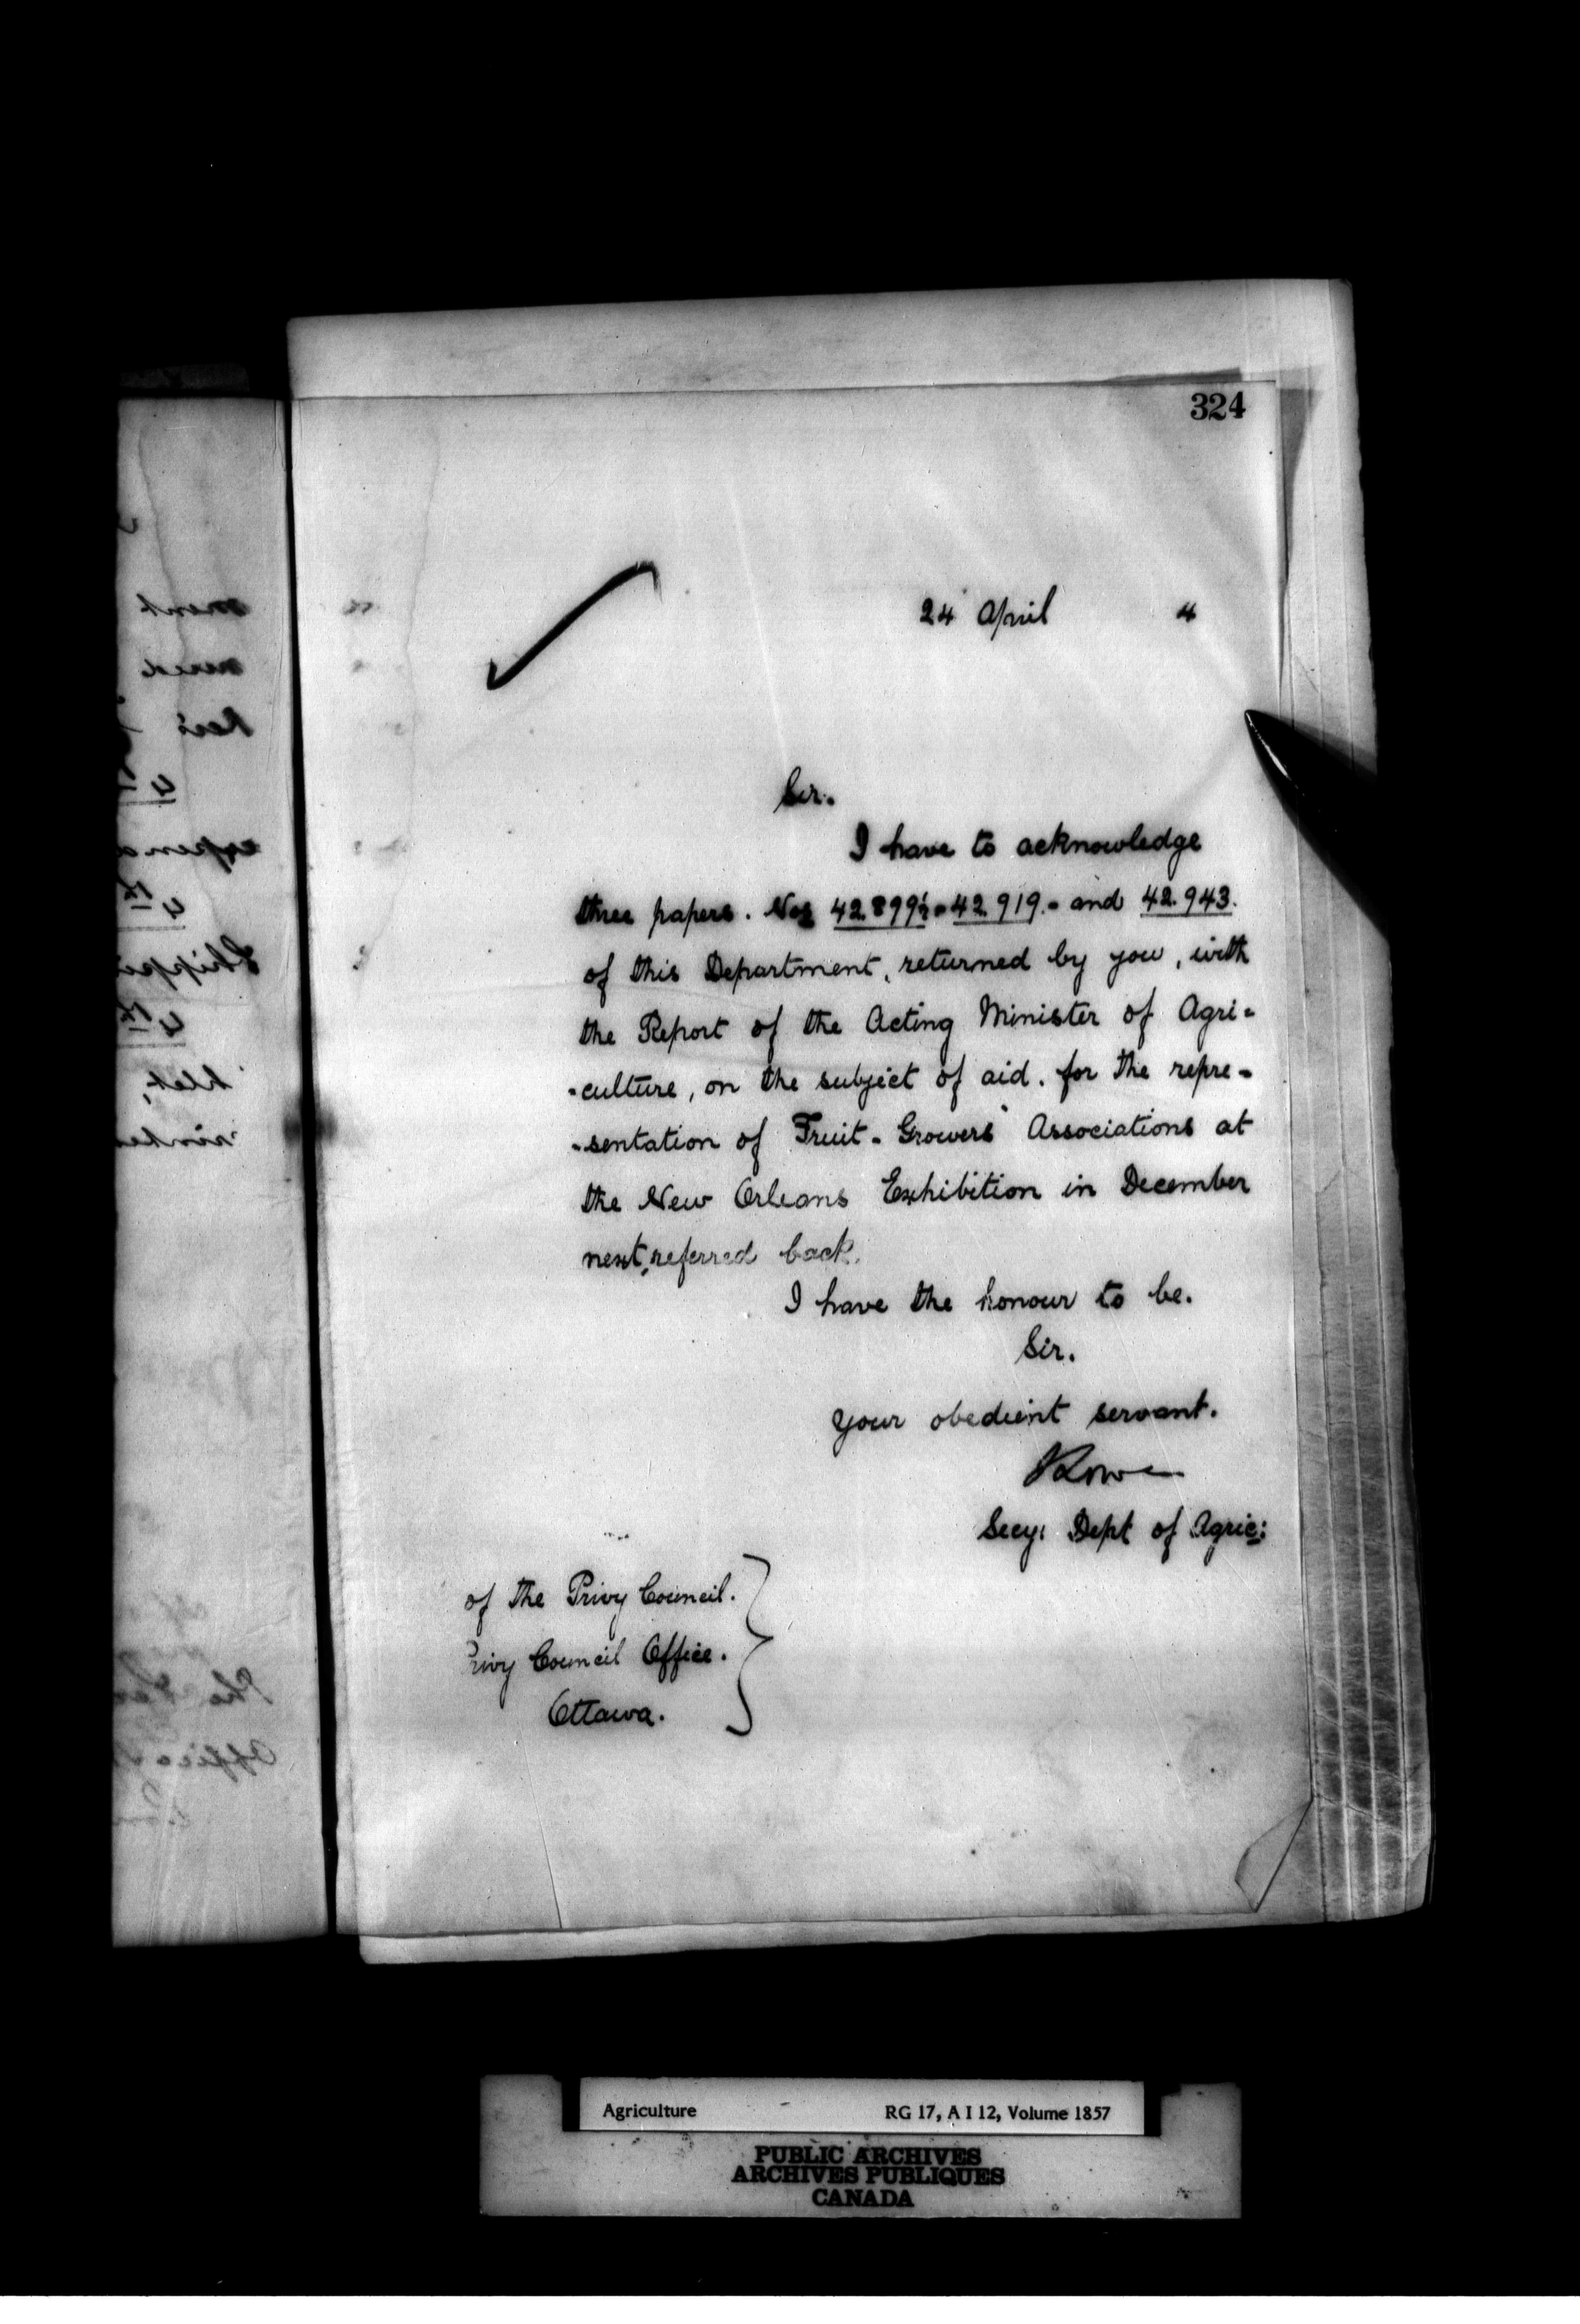 324
24 April 4
Sir.
I have to acknowledge
three papers. Nos 42.899½ - 42.919. - and 42.943.
of this Department, returned by you, with
the Report of the Acting Minister of Agri=
-culture, on the subject of aid. for the repre-
-sentation of Fruit-Growers' Associations at
the New Orleans Exhibition in December
next, referred back.
I have the honour to be.
Sir.
your obedient servant.
Secy: Dept of Agric:
of the Privy Council.
Privy Council Office.
Ottawa.
Agriculture RG 17, A I 12, Volume 1857
PUBLIC ARCHIVES
ARCHIVES PUBLIQUES
CANADA